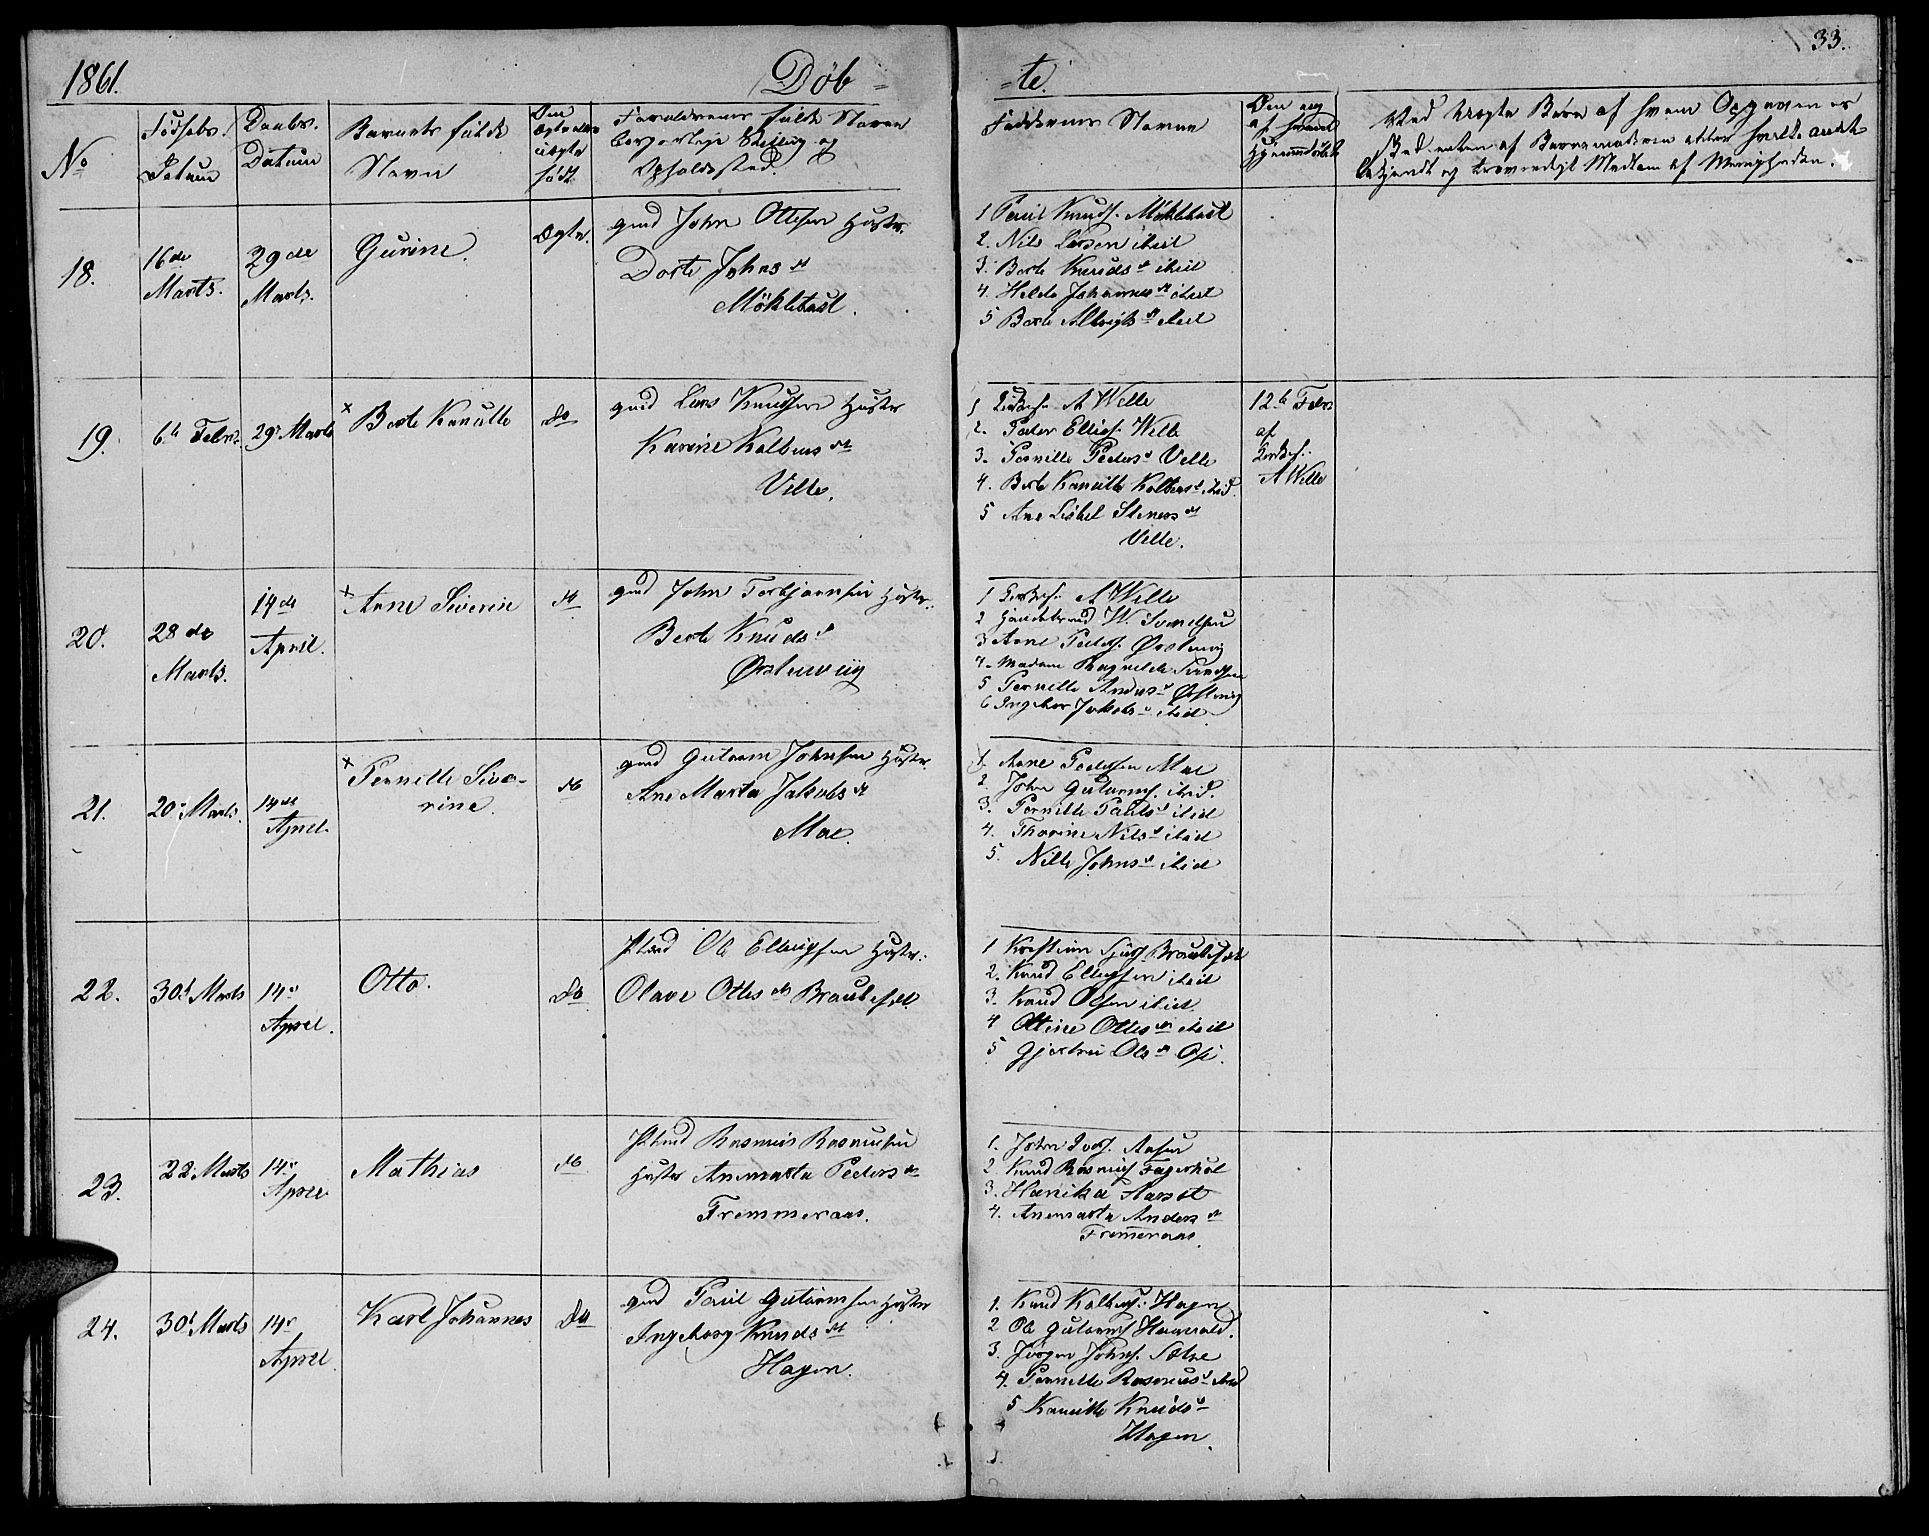 1861.
Døb-
-te.
33.
No
Fødsels-
Datum
Daabs-
Datum
Barnets fulde
Navn
Om
ægte eller
uægte
født.
Forældrenes fulde Navne
borgerlige Stilling og
Opholdssted.
Faddernes Navne
Om og
af hvem
hjemmedøbt
Ved uægte Børn af hvem Opgaven er
Sked enten af Barnemoderen eller hvilke andre
bekjendt og troværdigt Medlem af Menigheden.
18.
16de
Marts.
29de
Marts.
Gurine.
Ægte.
gmd John Ottesen Hustr.
Dorte Johnsdt
Möklebust.
1 Paul Knuds. Möklebust
2. Nils Larsen ibid
3. Berte Knudsd ibid
4. Helde Johannesdt ibid
5 Berte Albrigtsdt ibid
19.
6te Febr.
29de Marts
x Berte Kanutte
do
gmd Lars Knudsen Hustr
Karine Kolbensdt
Velle.
1 Kirkes. A Welle
2. Peder Ellings. Welle
3. Pernille Pedersd Velle
4. Berte Kanutte Kolbensd ibid.
5 Ane Lisbet Steners dt
Velle.
12te Febr
af
Kirkes.
A Welle
20.
28de
Marts.
14de
April.
x Anne Siverine
do
gmd John Torbjørnsen Hustr.
Berte Knudsd
Ørstenvig
1 Kirkes. A Welle
2 Handelsmd W. Svendsen
3 Arne Peders. Ørstenvig
4. Madam Ragnilde Svendsen
5 Pernille Andersd Ørstenvig
6 Ingebor Jakobsd ibid
21.
20de Marts.
14de
April.
x Pernille Sive-
rine.
do
gmd Gutorm Johnsen Hustr
Ane Marta Jakobsdt
Moe.
1. Arne Pedersen Moe
2. John Gutorms. ibid.
3. Pernille Paulsd ibid
4. Thorine Nilsd ibid
5. Nille Johnsd ibid
22.
30d Marts
14de
April.
Otto.
do
Plmd Ole Ellingsen Hustr.
Olave Ottesdt Brautesæt
1 Kristian Sjurs. Brautesæt
2. Knud Ellingsen ibid
3. Knud Olsen ibid
4 Ottine Ottesdt ibid
5 Gjertrui Olsdt Ose.
23.
22 Marts
14de
April
Mathias
do
Plmd Rasmus Rasmusen
Hustr Anemarta Pedersdt
Fremmeraas.
1. John Ivers. Aasen
2. Knud Rasmus. Fagerhol
3. Hanika Aarset
4. Anemarta Andersdt
Fremeraas.
24.
30d Marts
14de
April.
Karl Johannes
do
gmd Paul Gutormsen Hustr
Ingeborg Knudsdt
Hagen.
1. Knud Kolbens. Hagen
2 Ole Gutorms Haavald.
3. Jørgen Johns. Sætre
4. Pernille Rasmusd ibid
5 Kanutte Knudsd
Hagen.